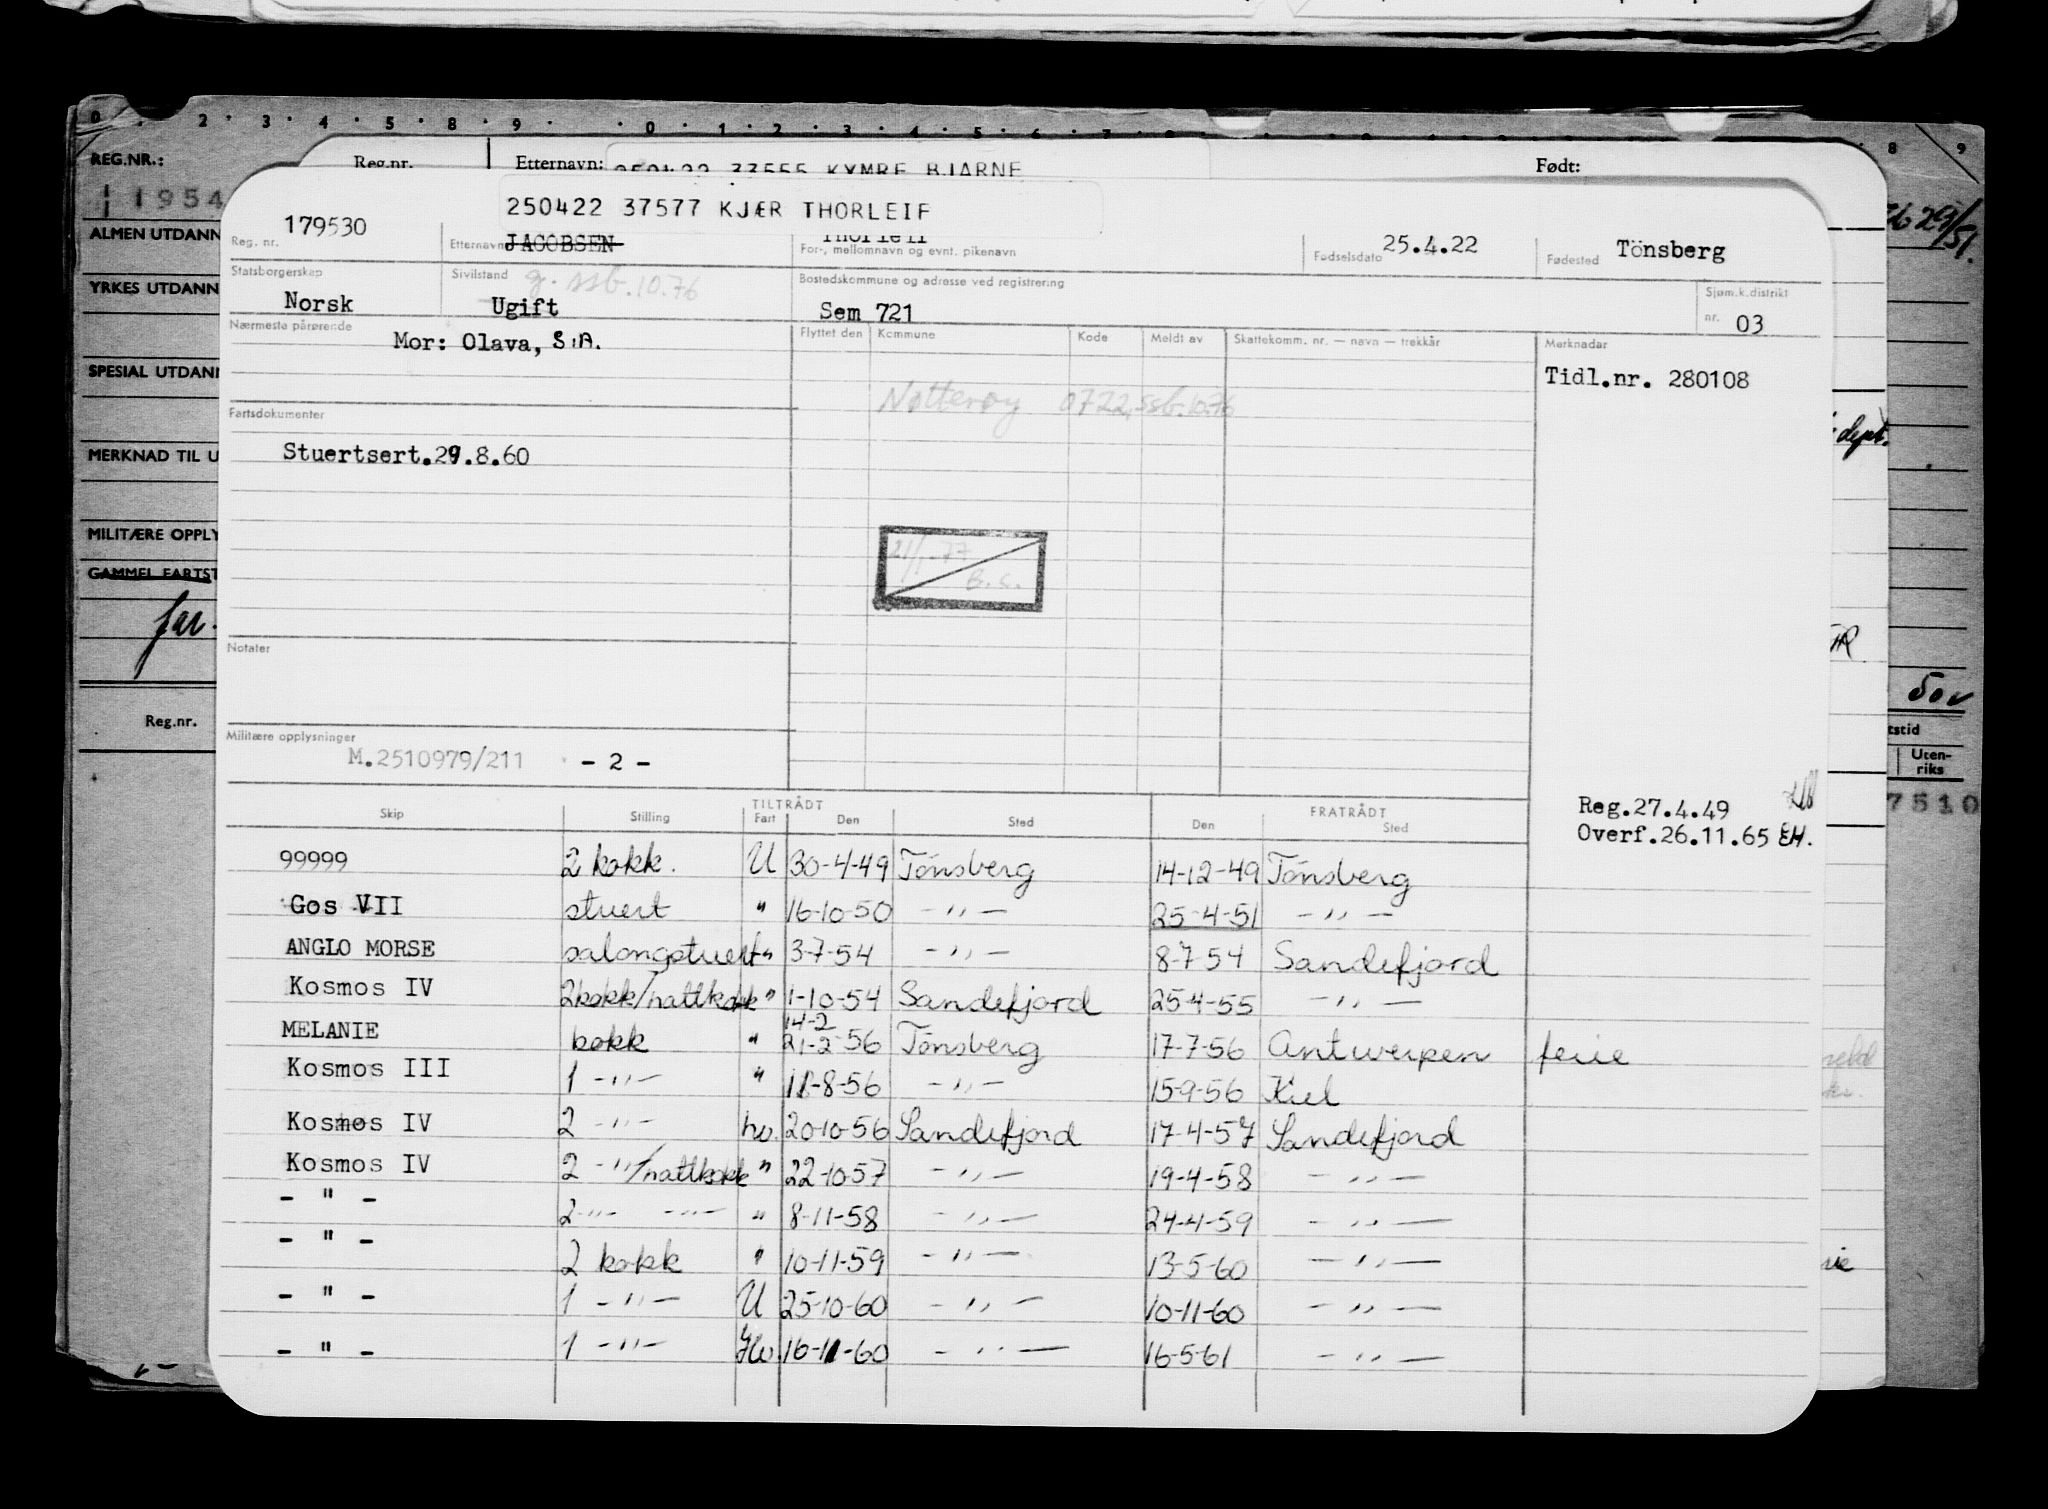 0 . 2 . 3 . 4 . 5 . 8 . 9 . . 0 . 1 . 2 . 3 . 4 . 5 . 6 . 7 . 8 9
REG.NR.: Reg.nr. Etternavn: 250422 33555 KYMRE BJARNE Født:
1954
250422 37577 KJÆR THORLEIF
29/51.
ALMEN UTDANN
Reg. nr. 179530 Etternavn JACOBSEN Thorleif
For-, mellomnavn og evnt. pikenavn Fødselsdato 25.4.22 Fødested Tönsberg
Statsborgerskap Sivilstand g. ssb.10.76 Bostedskommune og adresse ved registrering Sjøm.k.distrikt
YRKES UTDANN
Norsk Ugift Sem 721 nr. 03
Nærmeste pårørende Flyttet den Kommune Kode Meldt av Skattekomm. nr. — navn — trekkår Merknader
Mor: Olava, S.A.
SPESIAL UTDANN
Tidl.nr. 280108
Nøtterøy 0722, ssb.10.76
Fartsdokumenter
dept.
MERKNAD TIL U
Stuertsert.29.8.60
MILITÆRE OPPLY
21/1-77
B.S.
GAMMEL FARTST
far.
Notater
50
Reg.nr.
Militære opplysninger
M.2510979/211 - 2 -
tstid
Uten-
riks
7510
TILTRÅDT FRATRÅDT
Skip Stilling Fart Den Sted Den Sted
Reg.27.4.49
Overf.26.11.65 EH.
99999 2 kokk. U 30-4-49 Tönsberg 14-12-49 Tönsberg
Gos VII stuert " 16-10-50 - ,, - 25-4-51 - ,, -
ANGLO MORSE salongstuert " 3-7-54 - ,, - 8-7-54 Sandefjord
Kosmos IV 2kokk/nattkokk " 1-10-54 Sandefjord 25-4-55 - ,, -
14-2
MELANIE kokk " 21-2-56 Tönsberg 17-7-56 Antwerpen ferie
Kosmos III 1 - ,, - " 11-8-56 - ,, - 15-9-56 Kiel
Kosmos IV 2 - ,, - hv. 20-10-56 Sandefjord 17-4-57 Sandefjord
Kosmos IV 2 - ,, -/nattkokk " 22-10-57 - ,, - 19-4-58 - ,, -
- " - 2 - ,, - - ,, - " 8-11-58 - ,, - 24-4-59 - ,, -
- " - 2 kokk " 10-11-59 - ,, - 13-5-60 - ,, -
- " - 1 - ,, - U 25-10-60 - ,, - 10-11-60 - ,, -
- " - 1 - ,, - Hv. 16-11-60 - ,, - 16-5-61 - ,, -